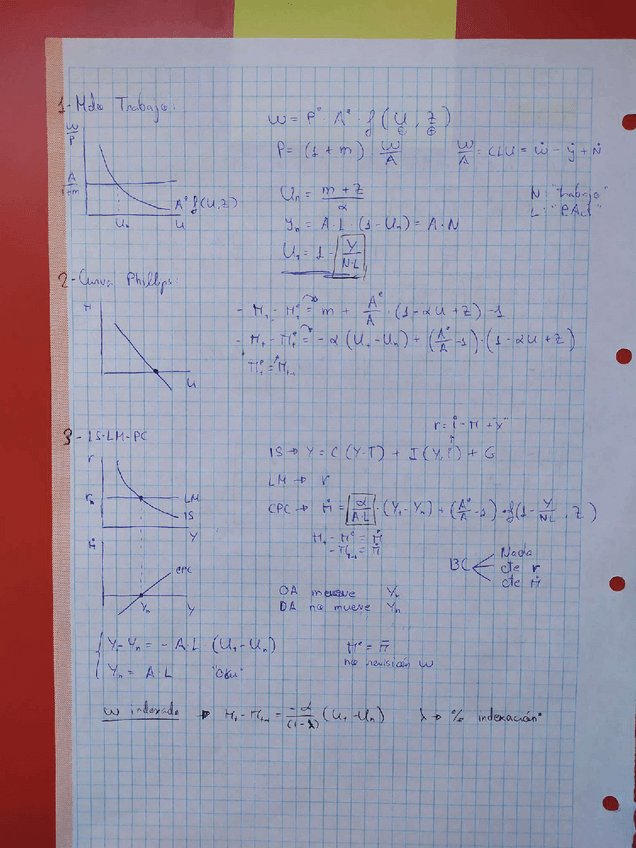 1- Mdo Trabajo:
W/P
A/1+m
Aᵉ f(U,Z)
Un
U
W = Pᵉ · Aᵉ · f(U, Z)
⊖ ⊕
P = (1 + m) · W/A
W/A = CLU = ẇ - ẏ + Ṅ
Un = m + z / α
N: "trabajo"
L: "PAct"
Yn = A · L · (1 - Un) = A · N
U₁ = 1 - Y/N·L
2- Curva Phillips:
π
U
- πt - πtᵉ = m + Aᵉ/A · (1 - αu + z) - 1
- πt - πtᵉ = - α (Ut - Un) + (Aᵉ/A - 1) · (1 - αu + z)
πtᵉ = πt-1
3- IS-LM-PC
r = i - π + "x"
IS → Y = C (Y-T) + I (Y, i) + G
LM → r
CPC → π̇ = α/A·L · (Yt - Yn) + (Aᵉ/A - 1) · f(1 - Y/NL, Z)
πt - πᵉ = π̇
- πt-1 = π̇
r
rn
LM
IS
Y
π̇
CPC
Yn
Y
BC
Nada
cte r
cte π̇
OA mueve Yn
DA no mueve Yn
Y - Yn = - A·L (Ut - Un)
πᵉ = π̄
no revisión W
Yn = A·L
"Okun"
W indexado → πt - πt-1 = -α/(1-λ) (Ut - Un)
λ → % indexación"